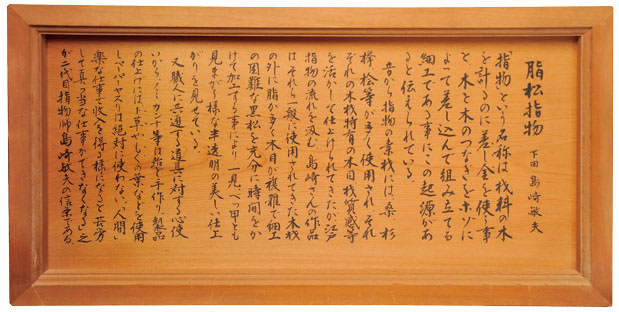 脂松指物
下田 島崎敏夫
指物という名称は材料の木
を計るのに差し金を使う事
と、木と木のつなぎをホゾに
よって差し込んで組み立てる
細工である事にこの起源があ
ると伝えられている。
昔から指物の素材には、桑、杉
欅、桧等が多く使用され、それ
ぞれの木材特有の木目、材質感等
を活かして仕上げられてきたが、江戸
指物の流れを汲む、島崎さんの作品
はそれ迄一般に使用されてきた木材
の外に脂が多く木目が複雑で細工
の困難な黒松を充分に時間をか
けて加工する事により一見べっ甲とも
見まがう様な半透明の美しい仕上
がりを見せている。
又職人に共通する道具に対する心使
いから、ノミ、カンナ等は殆ど手作り、製品
の仕上げには、とくさ、むくの葉などを使用
しペーパーヤスリは絶対に使わない。「人間、
楽な仕事で収入を得る様になると苦労
して真っ当な仕事ができなくなる」之
が二代目指物師島崎敏夫の信条である